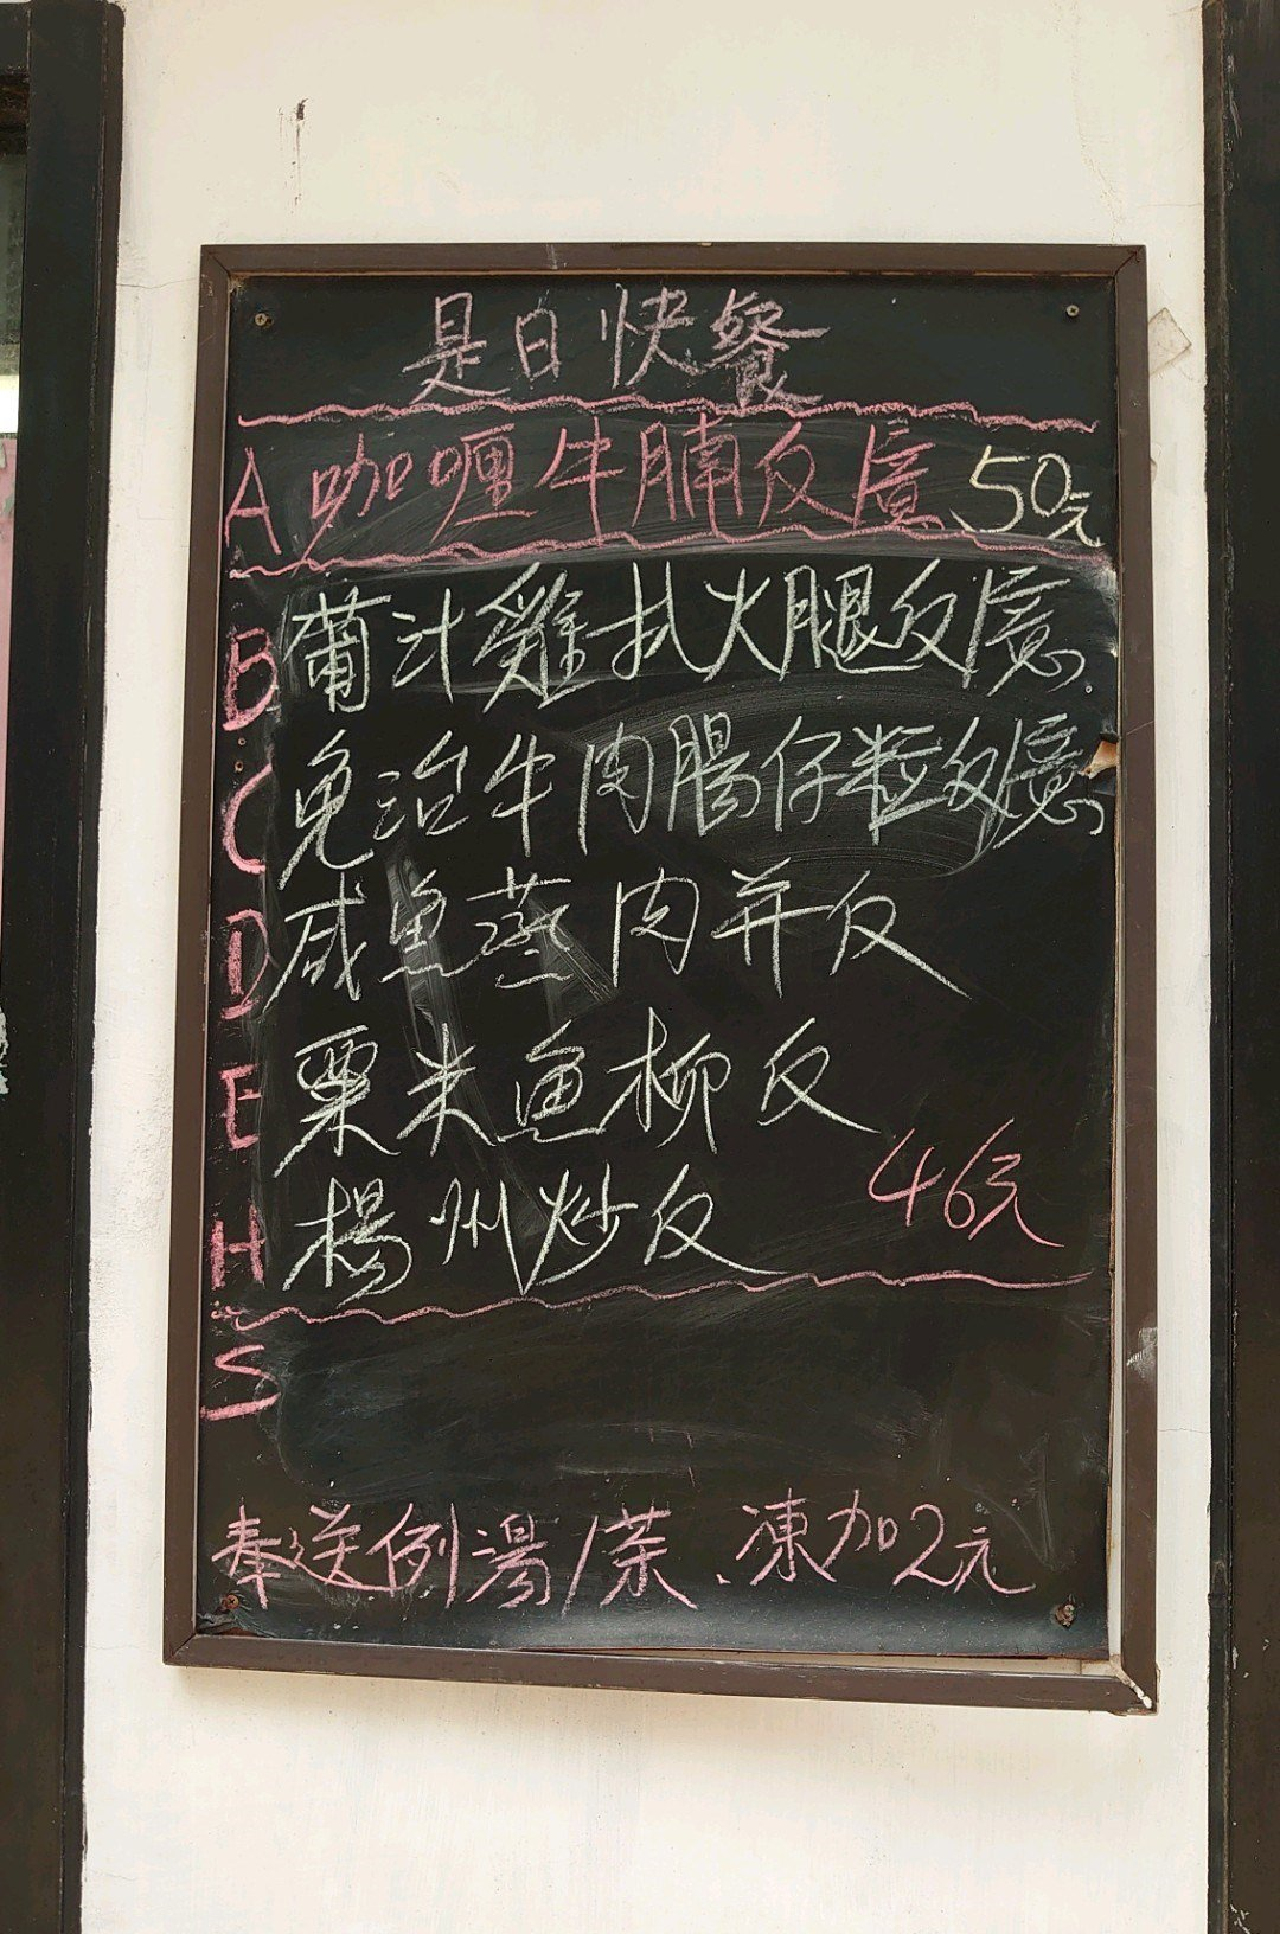 是日快餐
A 咖喱牛腩反意 50元
B 葡汁雞扒火腿反意
C 免治牛肉腸仔粒反意
D 咸魚蒸肉并反
E 粟米魚柳反
46元
H 楊州炒反
S
奉送例湯/茶、凍加2元